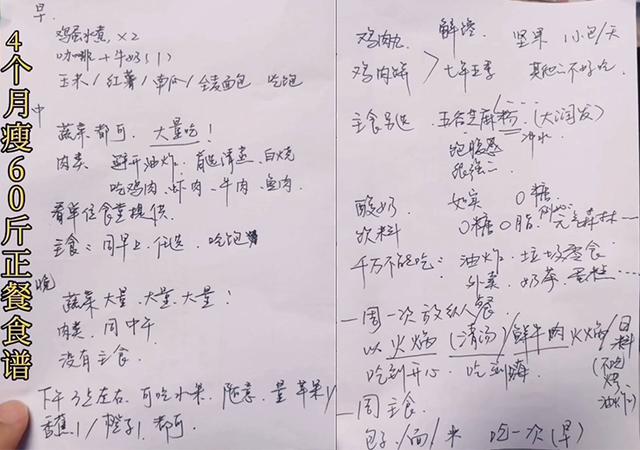 4个月瘦60斤正餐食谱
早.
鸡蛋水煮,×2
咖啡+牛奶(1)
玉米/红薯/南瓜/全麦面包 吃饱
中
蔬菜都可.大量吃!
肉类 避开油炸.首选清蒸.白烧
吃鸡肉.虾肉.牛肉.鱼肉.
看单位食堂提供.
主食:同早上.任选.吃饱
晚
蔬菜大量.大量.大量!
肉类.同中午
没有主食.
下午3点左右.可吃水果.随意.量苹果1/
香蕉1/橙子1.都可.
鸡肉丸 解馋. 坚果 1小包/天
鸡肉饼 > 七年五季 其他:不好吃.
主食另选.五谷芝麻粉.(大润发)
冲水
饱腹感
很强
酸奶. 如实 0糖
饮料 0糖0脂. 元气森林—
千万不能吃:油炸.垃圾零食
外卖.奶茶.蛋糕…
一周一次放纵餐
以火焰(清汤)/鲜牛肉火焰/日料
吃到开心.吃到嗨 (不吃鸡油炸)
一周主食.
包子/面/米 吃一次(早)